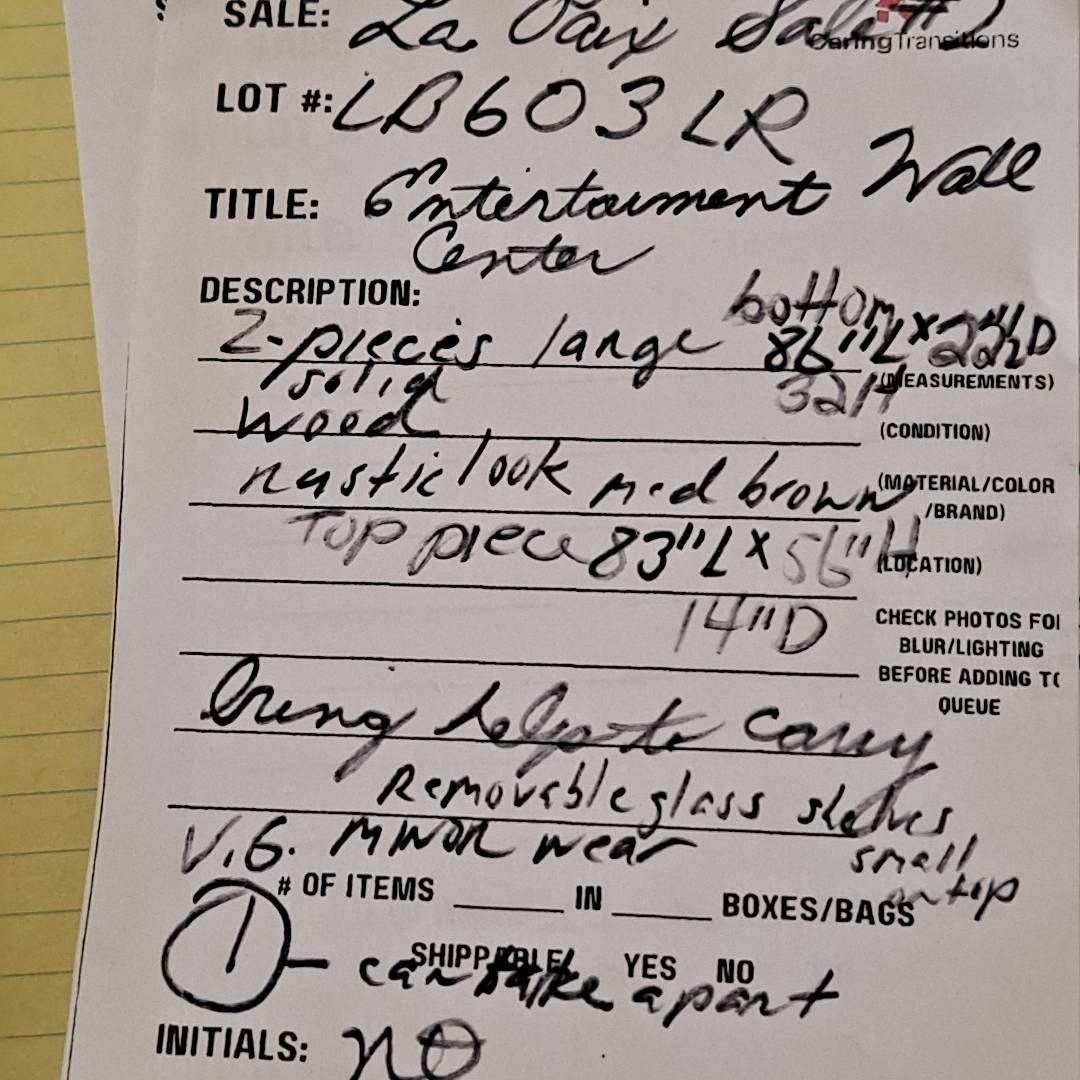 SALE: La Paix Sale #2
CaringTransitions
LOT #: LB603LR
TITLE: Entertainment Wall
Center
DESCRIPTION:
bottom
2-pieces large 86"L x 22½D
(MEASUREMENTS)
solid 32H
wood
(CONDITION)
rustic look med brown (MATERIAL/COLOR
/BRAND)
Top piece 83"L x 56"H
(LOCATION)
14"D
CHECK PHOTOS FOR
BLUR/LIGHTING
BEFORE ADDING TO
QUEUE
bring help to carry
Removable glass shelves
V.G. minor wear small
on top
# OF ITEMS IN BOXES/BAGS
1 - can take apart
SHIPPABLE YES NO
INITIALS: NO